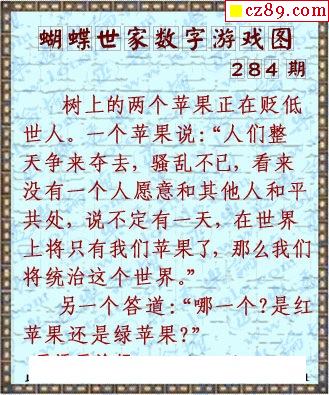 cz89.com
蝴蝶世家数字游戏图
284 期
树上的两个苹果正在贬低
世人。一个苹果说：“人们整
天争来夺去，骚乱不已，看来
没有一个人愿意和其他人和平
共处，说不定有一天，在世界
上将只有我们苹果了，那么我们
将统治这个世界。”
另一个答道：“哪一个？是红
苹果还是绿苹果？”